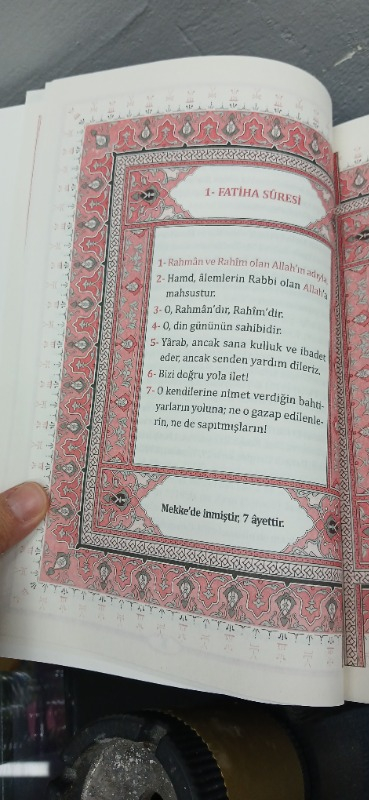 1- FATİHA SÛRESİ
1- Rahmân ve Rahîm olan Allah'ın adıyla
2- Hamd, âlemlerin Rabbi olan Allah'a
mahsustur.
3- O, Rahmân'dır, Rahîm'dir.
4- O, din gününün sahibidir.
5- Yârab, ancak sana kulluk ve ibadet
eder, ancak senden yardım dileriz.
6- Bizi doğru yola ilet!
7- O kendilerine nimet verdiğin bahti-
yarların yoluna; ne o gazap edilenle-
rin, ne de sapıtmışların!
Mekke'de inmiştir, 7 âyettir.